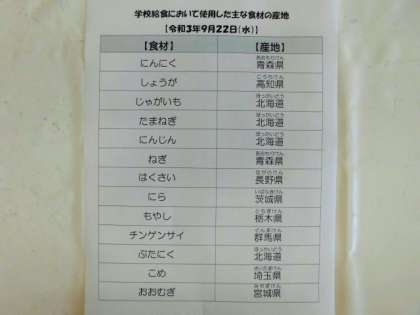 学校給食において使用した主な食材の産地
【令和3年9月22日(水)】
【食材】 【産地】
にんにく 青森県
しょうが 高知県
じゃがいも 北海道
たまねぎ 北海道
にんじん 北海道
ねぎ 青森県
はくさい 長野県
にら 茨城県
もやし 栃木県
チンゲンサイ 群馬県
ぶたにく 北海道
こめ 埼玉県
おおむぎ 宮城県